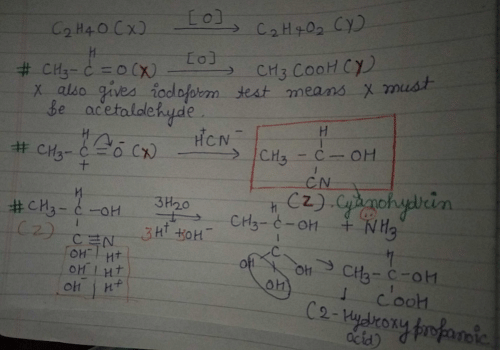 C2H4O (X) [O]→ C2H4O2 (Y)
H
# CH3-C=O(X) [O]→ CH3COOH (Y)
X also gives iodoform test means X must
be acetaldehyde.
H
# CH3-C=O(X) H+CN-→ CH3-C-OH
+
H
CN
(Z) Cyanohydrin
H
# CH3-C-OH 3H2O→ CH3-C-OH + NH3
(Z) 3H+ + 3OH-
C≡N
OH- H+
OH- H+
OH- H+
H
C
OH OH
OH
→ CH3-C-OH
H
COOH
(2-Hydroxypropanoic
acid)